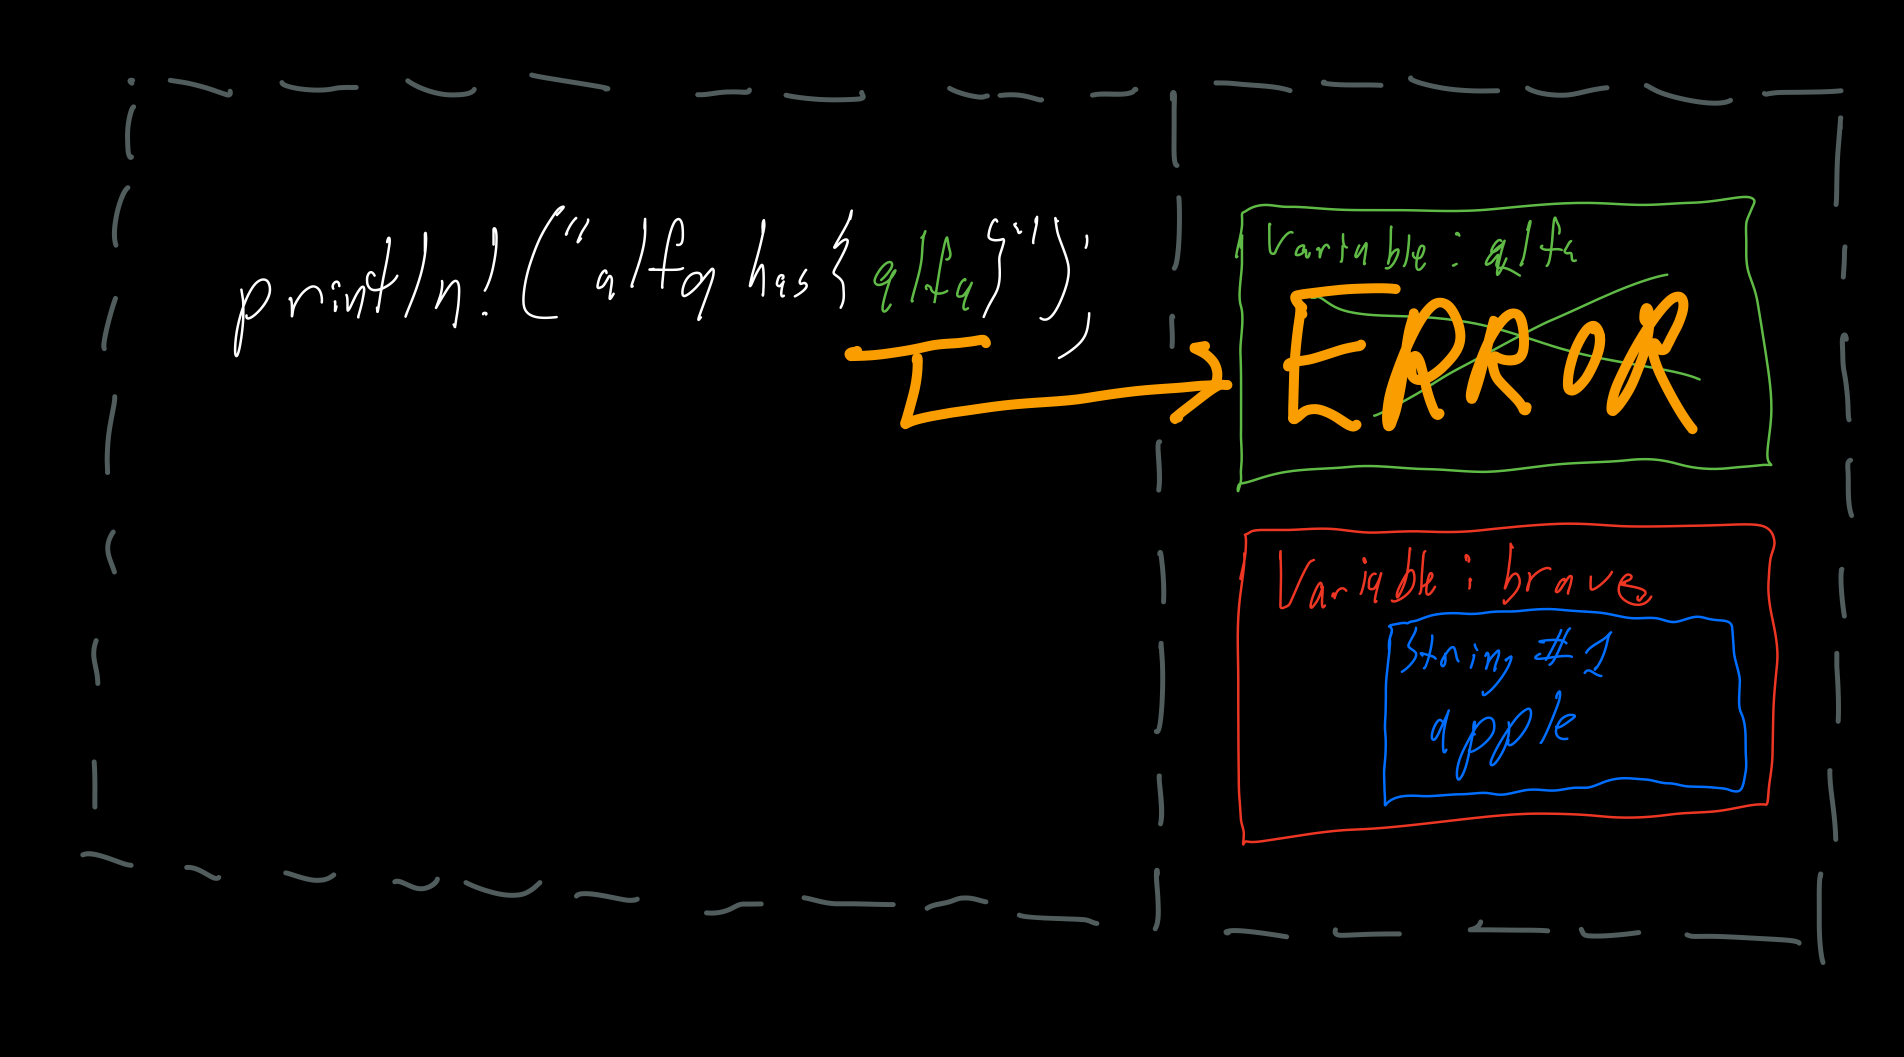 println!("alfa has {alfa}");
Variable: alfa
ERROR
Variable: brave
String #1
apple